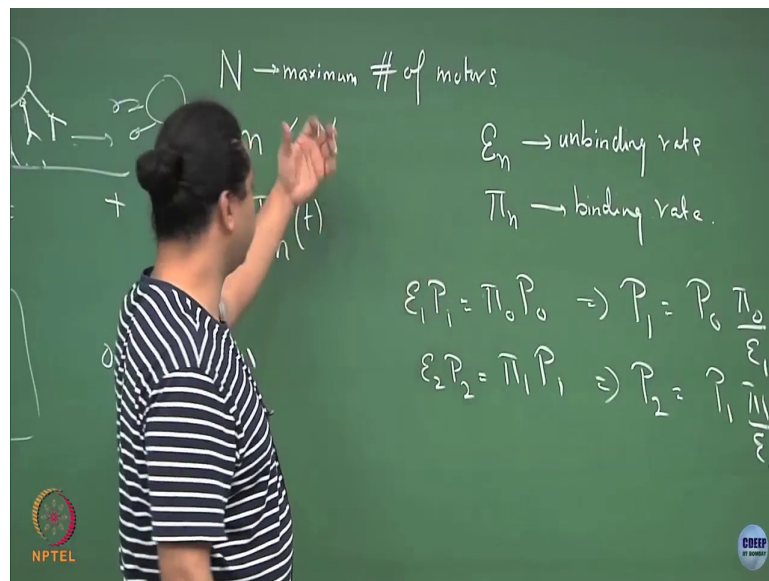 N → maximum # of motors.
n
εn → unbinding rate
Πn → binding rate.
n(t)
+
ε1P1 = Π0P0 ⇒ P1 = P0 Π0/ε1
ε2P2 = Π1P1 ⇒ P2 = P1
NPTEL
CDEEP
IIT BOMBAY